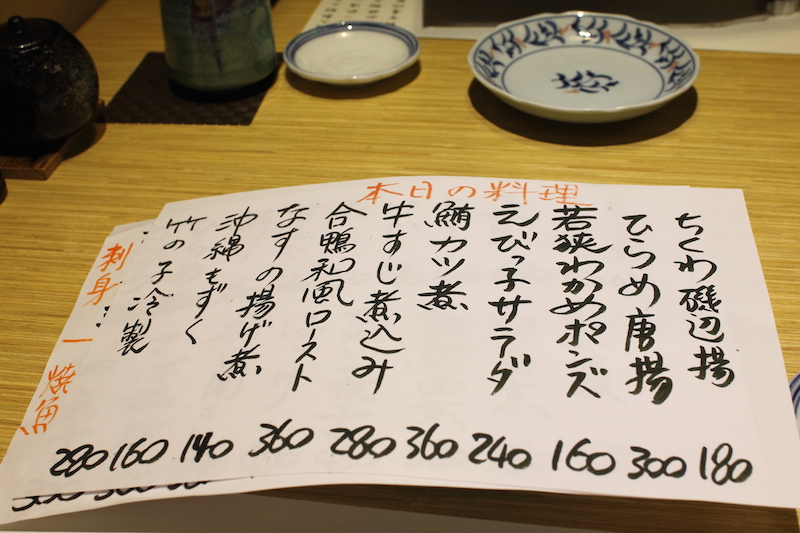 本日の料理
ちくわ磯辺揚 180
ひらめ唐揚 300
若狭わかめポンズ 160
えびっ子サラダ 240
鮪カツ煮 360
牛すじ煮込み 280
合鴨和風ロースト 360
なすの揚げ煮 140
沖縄もずく 160
竹の子冷製 280
刺身 ー 焼魚